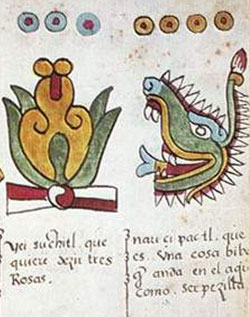 yei suchitl. que
quiere dezir tres
Rosas.
nau ci pactl. que
es. Una cosa bib
q anda en el aq
como. serpezilla